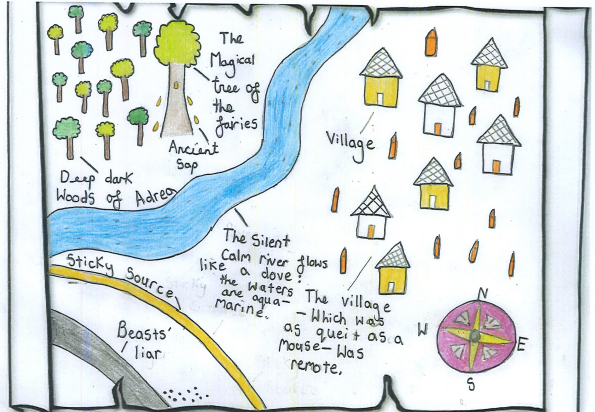 The
Magical
tree of
the
fairies
Ancient
Sap
Deep dark
Woods of Adrea
Village
The Silent
Calm river flows
like a dove:
the waters
are aqua-
marine.
Sticky Source
Beasts'
liar
The village
-Which was
as queit as a
mouse- was
remote.
N
W
E
S